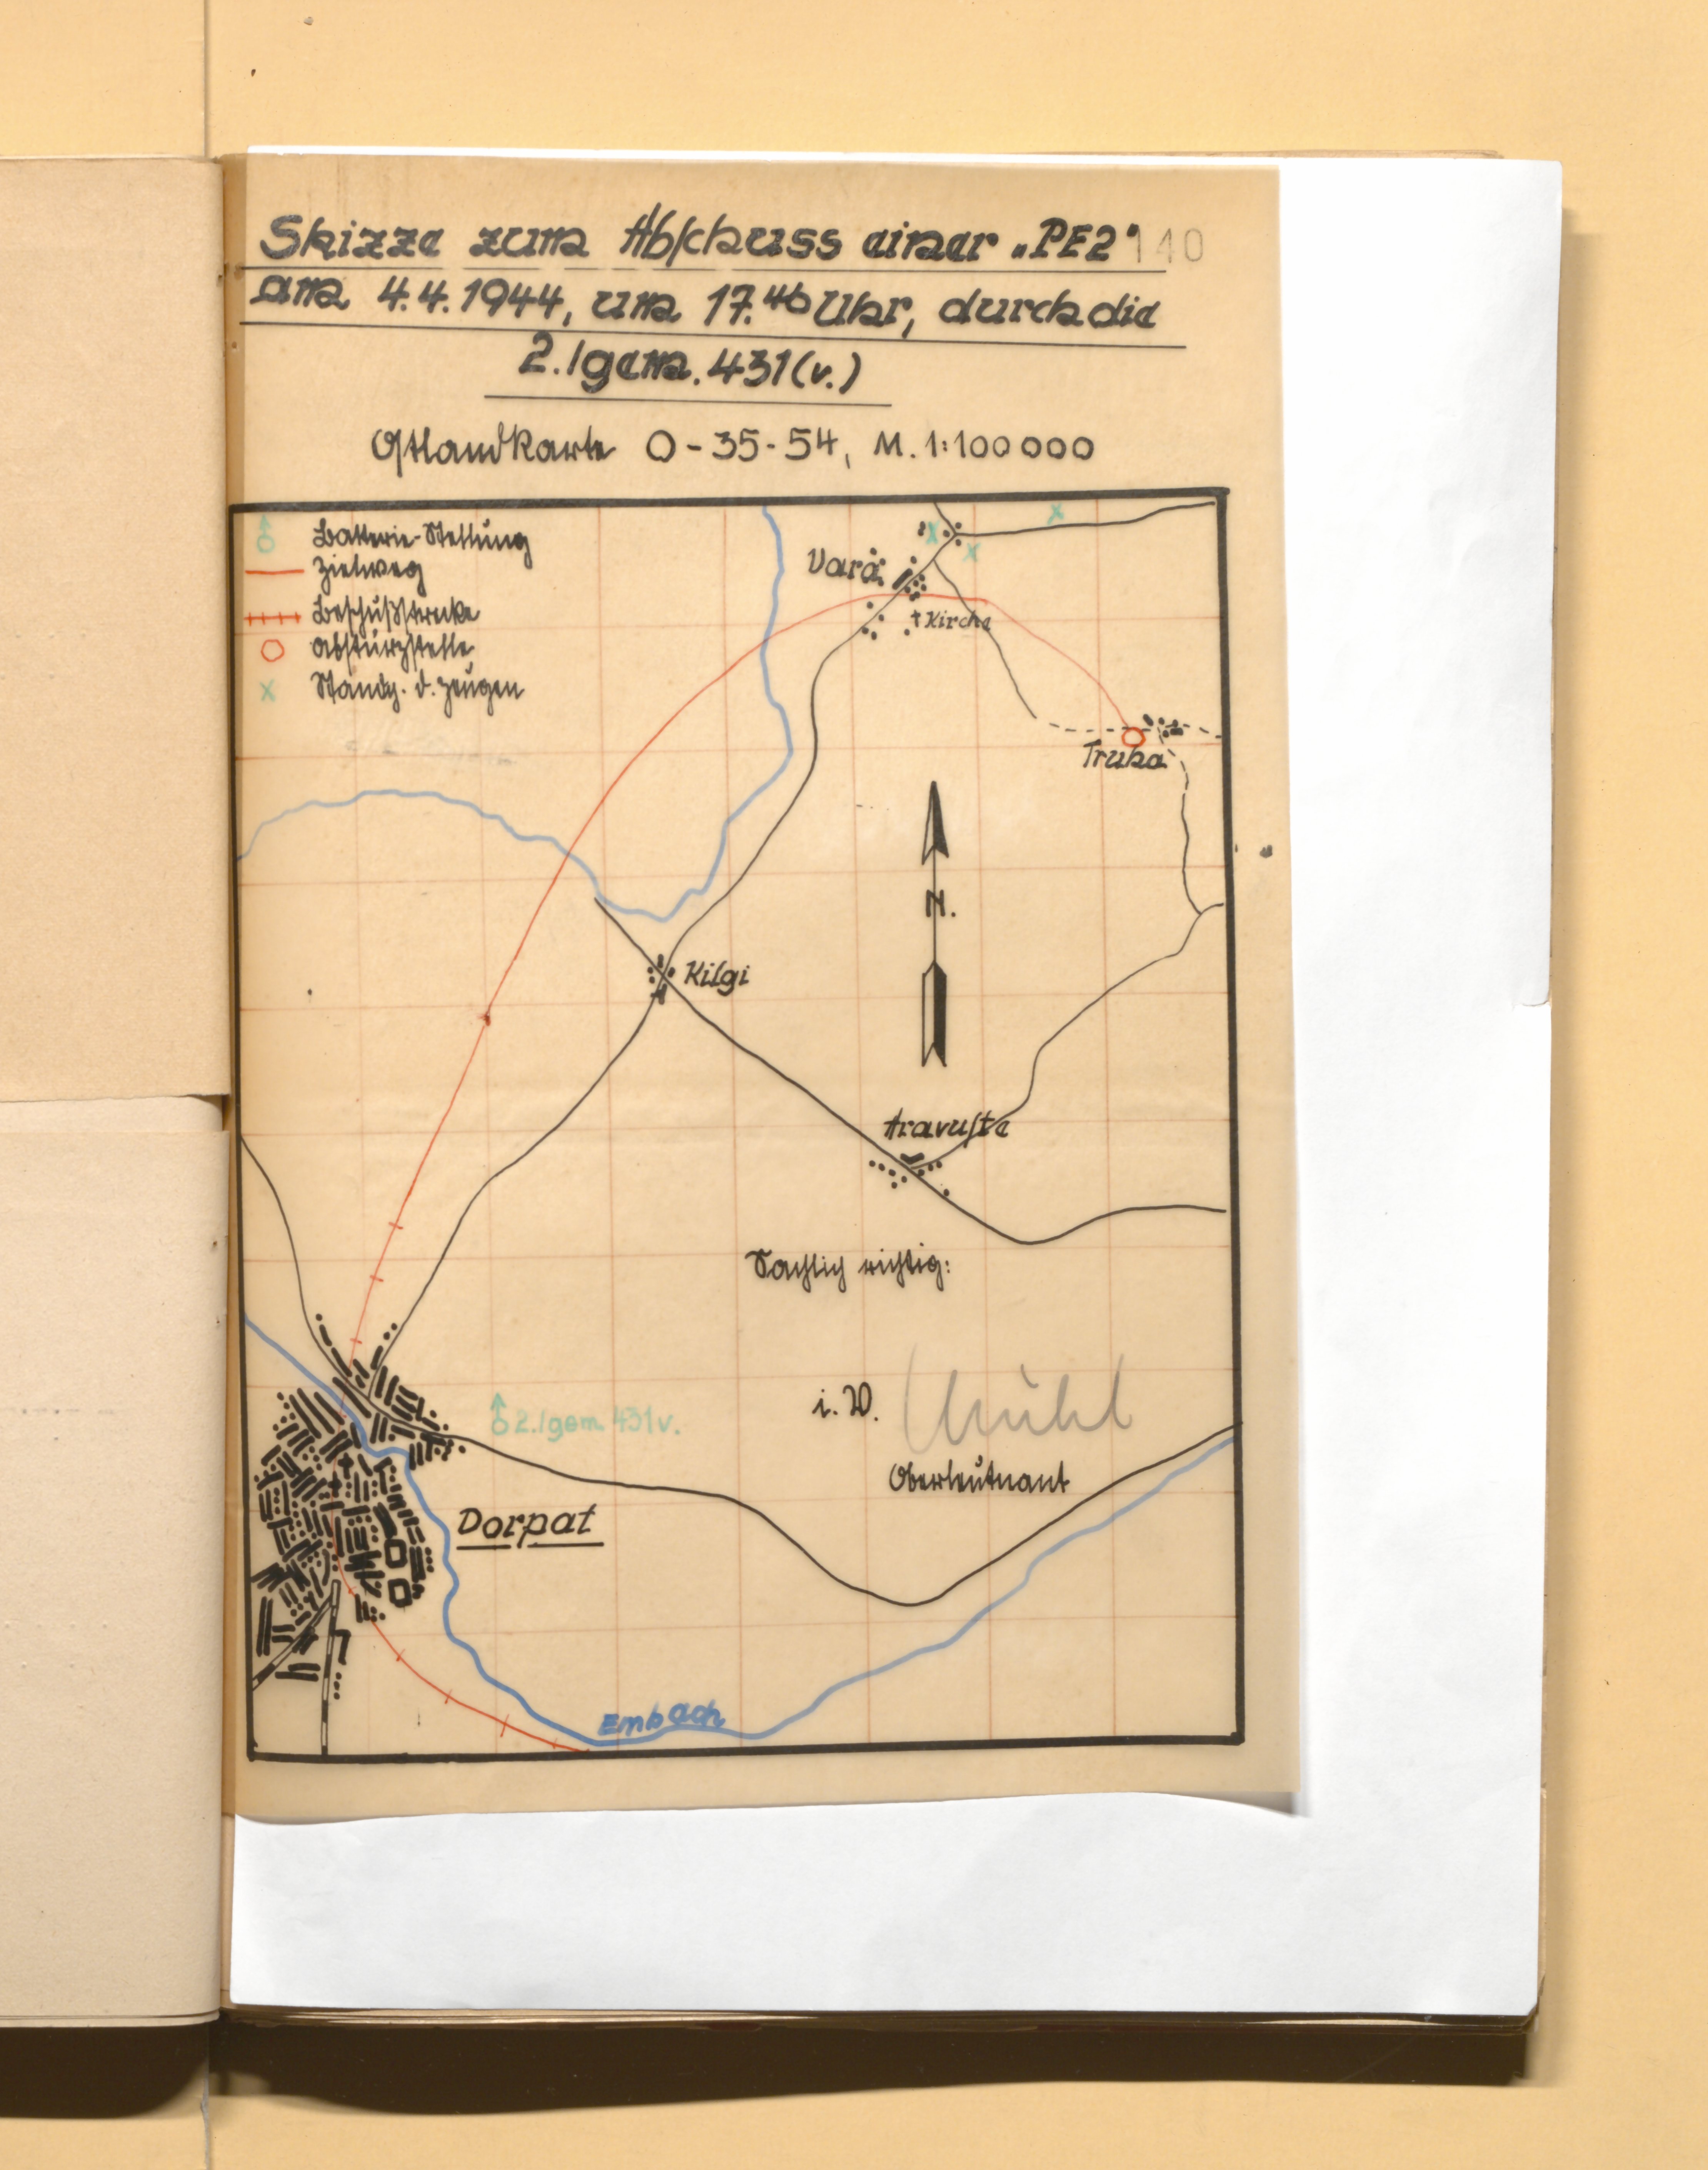 Skizze zum Abschuss einer „PE2" 140
am 4.4.1944, um 17.46 Uhr, durch die
2./gem. 431 (v.)
Ostlandkarte O-35-54, M. 1:100 000
Batterie-Stellung
Zielweg
Beschußstrecke
Absturzstelle
Standp. d. Zeugen
Vara
Kirche
Truha
N.
Kilgi
Aravuste
Sachlich richtig:
2./gem. 431 v.
i.V.
Oberleutnant
Dorpat
Embach